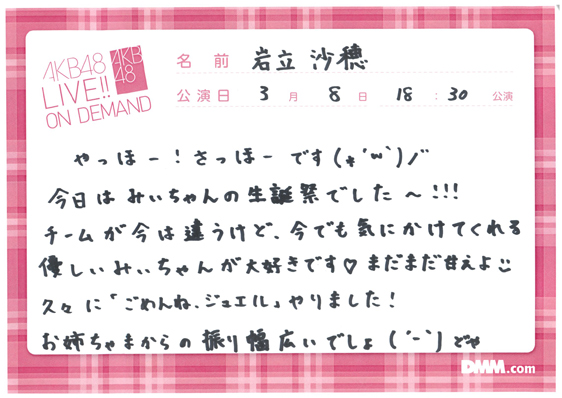 AKB48
LIVE!!
ON DEMAND
AKB
48
名前 岩立 沙穂
公演日 3月 8日 18:30 公演
やっほー!さっほーです(*´ω`)ノ゛
今日はみぃちゃんの生誕祭でした〜!!!
チームが今は違うけど、今でも気にかけてくれる
優しいみぃちゃんが大好きです♡まだまだ甘えよ☺
久々に「ごめんね、ジュエル」やりました!
お姉ちゃまからの振り幅広いでしょ(´-`)どや
DMM.com